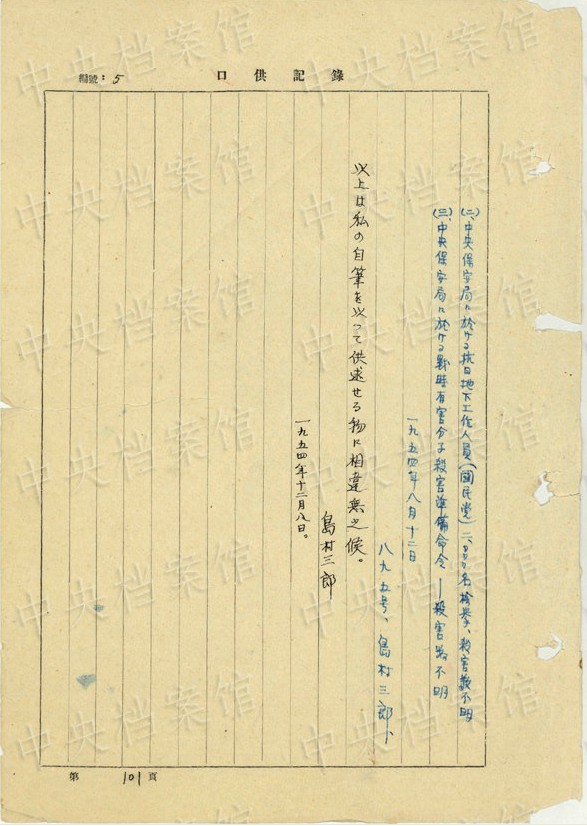 編號：5
口供記錄
(二)、中央保安局に於ける抗日地下工作人員(國民党)二、〇〇〇名検挙、殺害数不明
(三)、中央保安局に於ける戰時有害分子殺害準備命令 ― 殺害数不明
一九五四年八月十二日
八九五号、島村三郎
以上は私の自筆を以つて供述せる物に相違無之候。
島村三郎
一九五四年十二月八日。
第101頁
中央档案馆